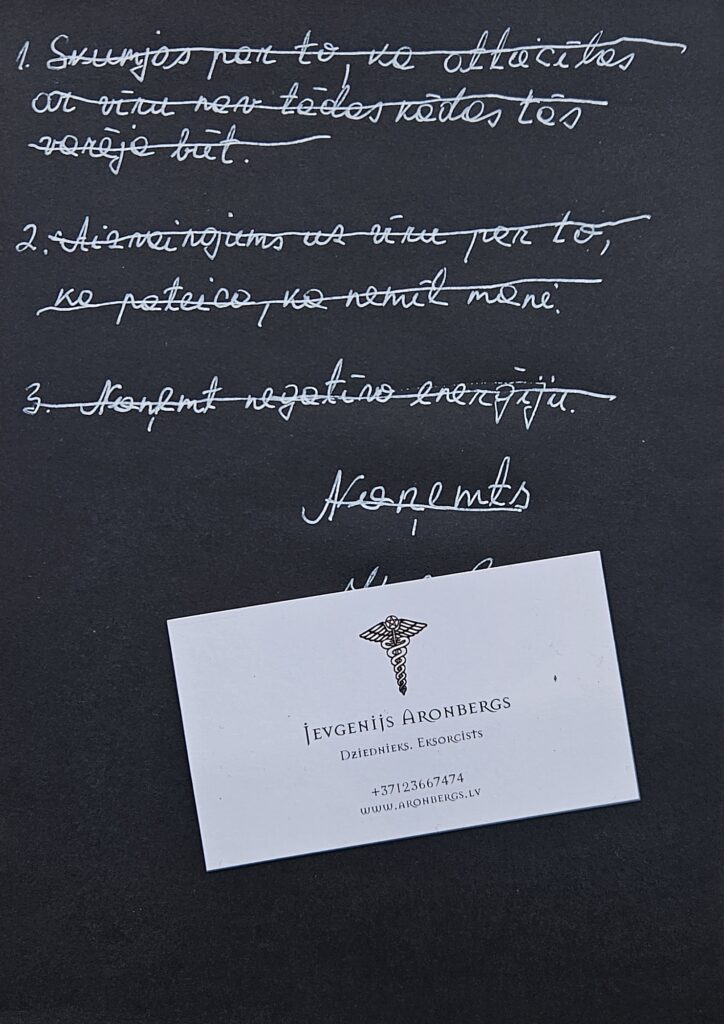 1. Skumjas par to, ka attiecības
ar vīru nav tādas kādas tās
varēja būt.
2. Aizvainojums uz vīru par to,
ka pateica, ka nemīl mani.
3. Noņemt negatīvo enerģiju.
Noņemts
Jevgenijs Aronbergs
Dziednieks. Eksorcists
+37123667474
www.aronbergs.lv